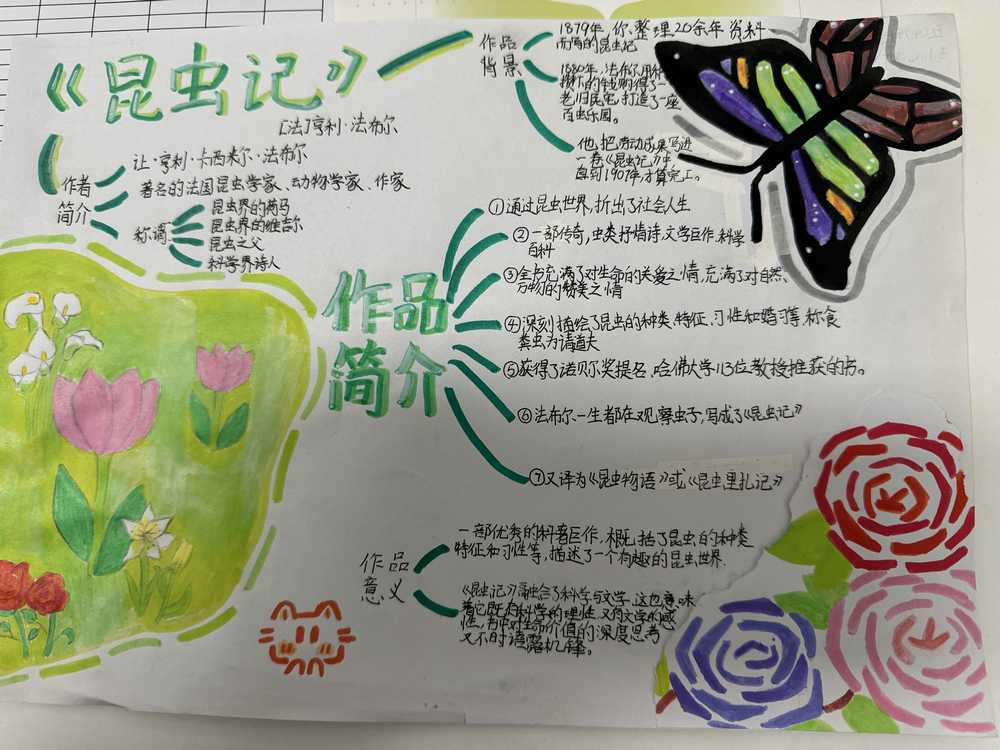 《昆虫记》
[法]亨利·法布尔
作者
简介
让·亨利·卡西米尔·法布尔
著名的法国昆虫学家、动物学家、作家
称谓
昆虫界的荷马
昆虫界的维吉尔
昆虫之父
科学界诗人
作品
背景
1879年,你、整理20余年资料
而写的昆虫记
1880年,法布尔用积
攒下的钱购得了一
老旧民宅,打造了一座
百虫乐园。
他把劳动成果写进
一卷《昆虫记》中
直到1907年才算完工。
作品
简介
①通过昆虫世界,折出了社会人生
②一部传奇,虫类抒情诗,文学巨作,科学
百科
③全书充满了对生命的关爱之情,充满了对自然、
万物的赞美之情
④深刻描绘了昆虫的种类、特征、习性和婚习等,称食
粪虫为清道夫
⑤获得了诺贝尔奖提名、哈佛大学113位教授推获的书。
⑥法布尔一生都在观察虫子,写成了《昆虫记》
⑦又译为《昆虫物语》或《昆虫里扎记》
作品
意义
一部优秀的科普巨作,概括了昆虫的种类
特征和习性等,描述了一个有趣的昆虫世界.
《昆虫记》融合了科学与文学,这也意味
着它既有科学的理性,又有文学的感
性,书中对生命价值的深度思考
又不时语露机锋。